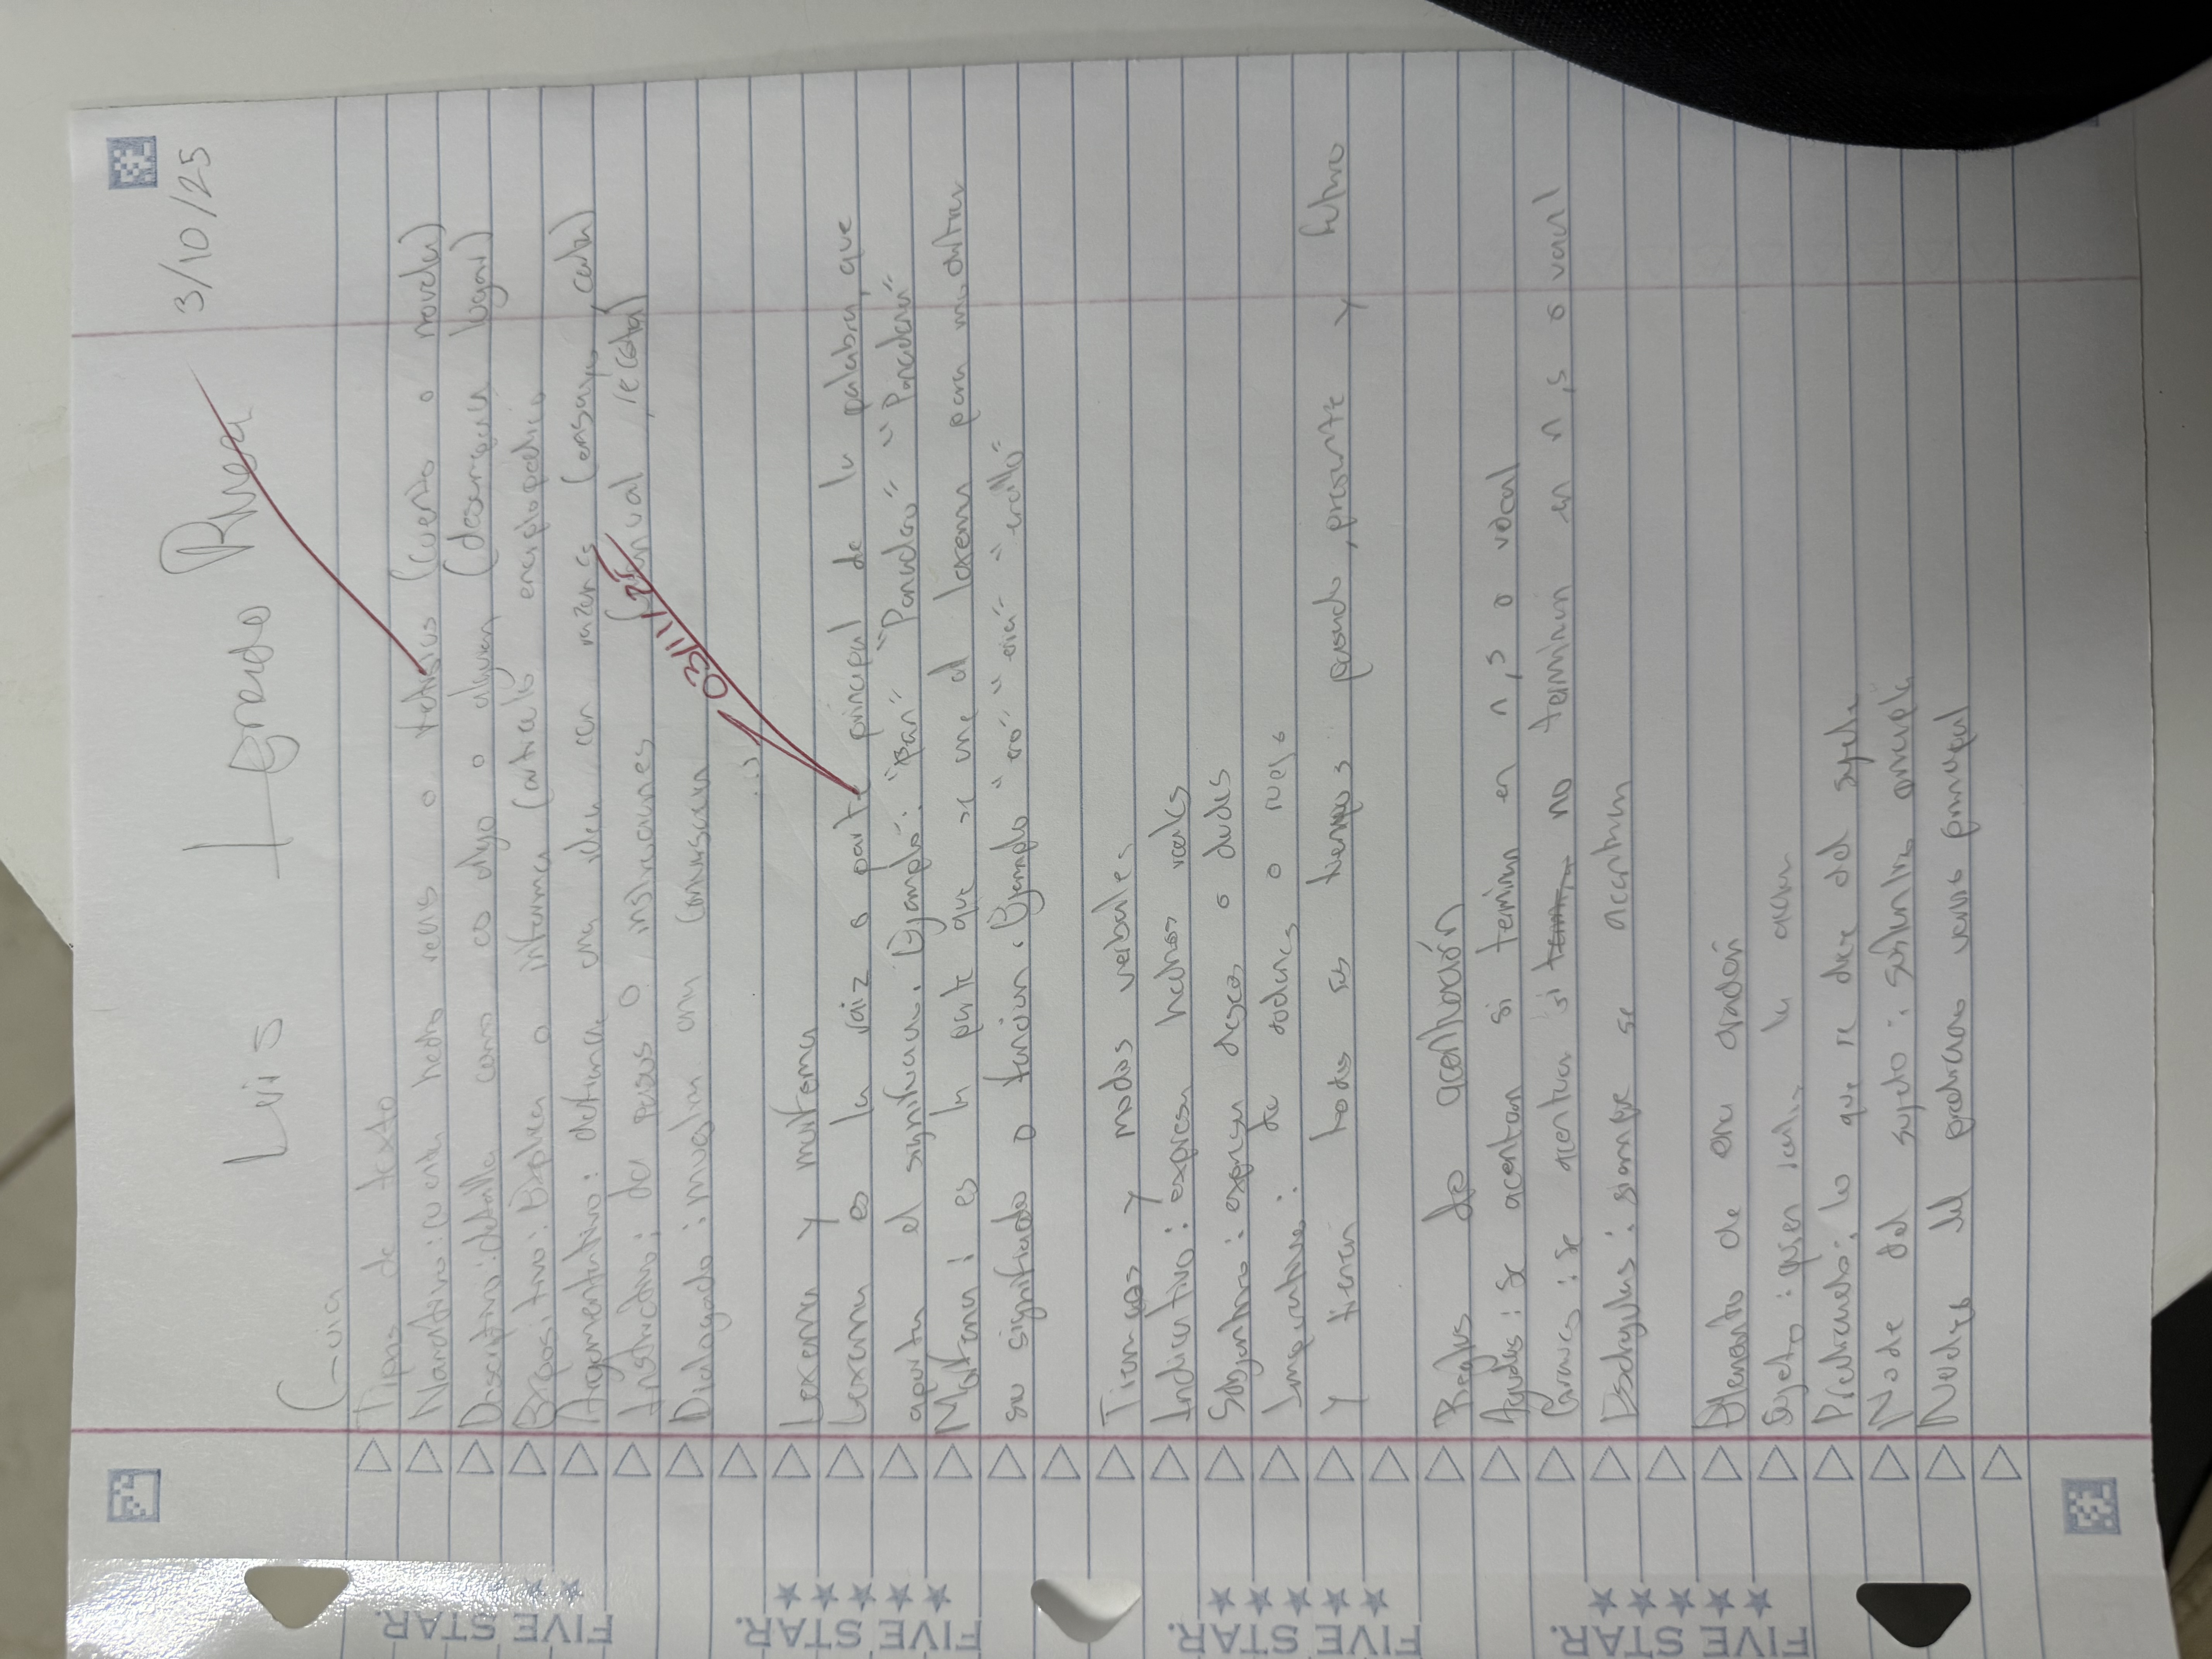 Luis Fernando Rivera 3/10/25
Guia
Tipos de texto
Narrativo: cuenta hechos reales o ficticios (cuento o novela)
Descriptivo: detalla como es algo o alguien (descripcion lugar)
Expositivo: Explica o informa (articulo enciclopedico
Argumentativo: defiende una idea con razones (ensayo, carta)
Instructivo: da pasos o instrucciones (manual, receta)
Dialogado: muestra una conversacion
03/11/25
Lexema y morfema
Lexema es la raiz o parte principal de la palabra, que
aporta el significado. Ejemplo: "Pan" "Panadero" "Panaderia"
Morfema: es la parte que se une al lexema para modificar
su significado o funcion. Ejemplo "ero" "eria" "ecillo"
Tiempos y modos verbales
Indicativo: expresa hechos reales
Subjuntivo: expresa deseos o dudas
Imperativo: da ordenes o ruego
Y tienen todos sus tiempos pasado, presente y futuro
Reglas de acentuación
Agudas: Se acentan si termina en n, s o vocal
Graves: Se acentua si no terminan en n, s o vocal
Esdrujulas: siempre se acentua
Elemento de una oración
Sujeto: quien realiza la accion
Predicado: lo que se dice del sujeto
del sujeto: sustantivo principal
Nucleo del predicado verbo principal
FIVE STAR.
FIVE STAR.
FIVE STAR.
FIVE STAR.